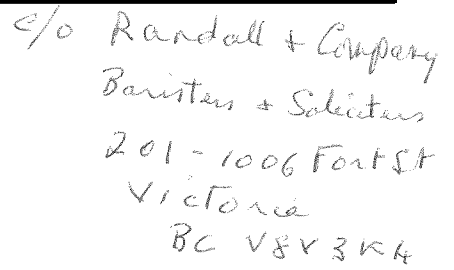 c/o Randall + Company
Baristers + Soliciters
201-1006 Fort St
Victoria
BC V8V 3K4